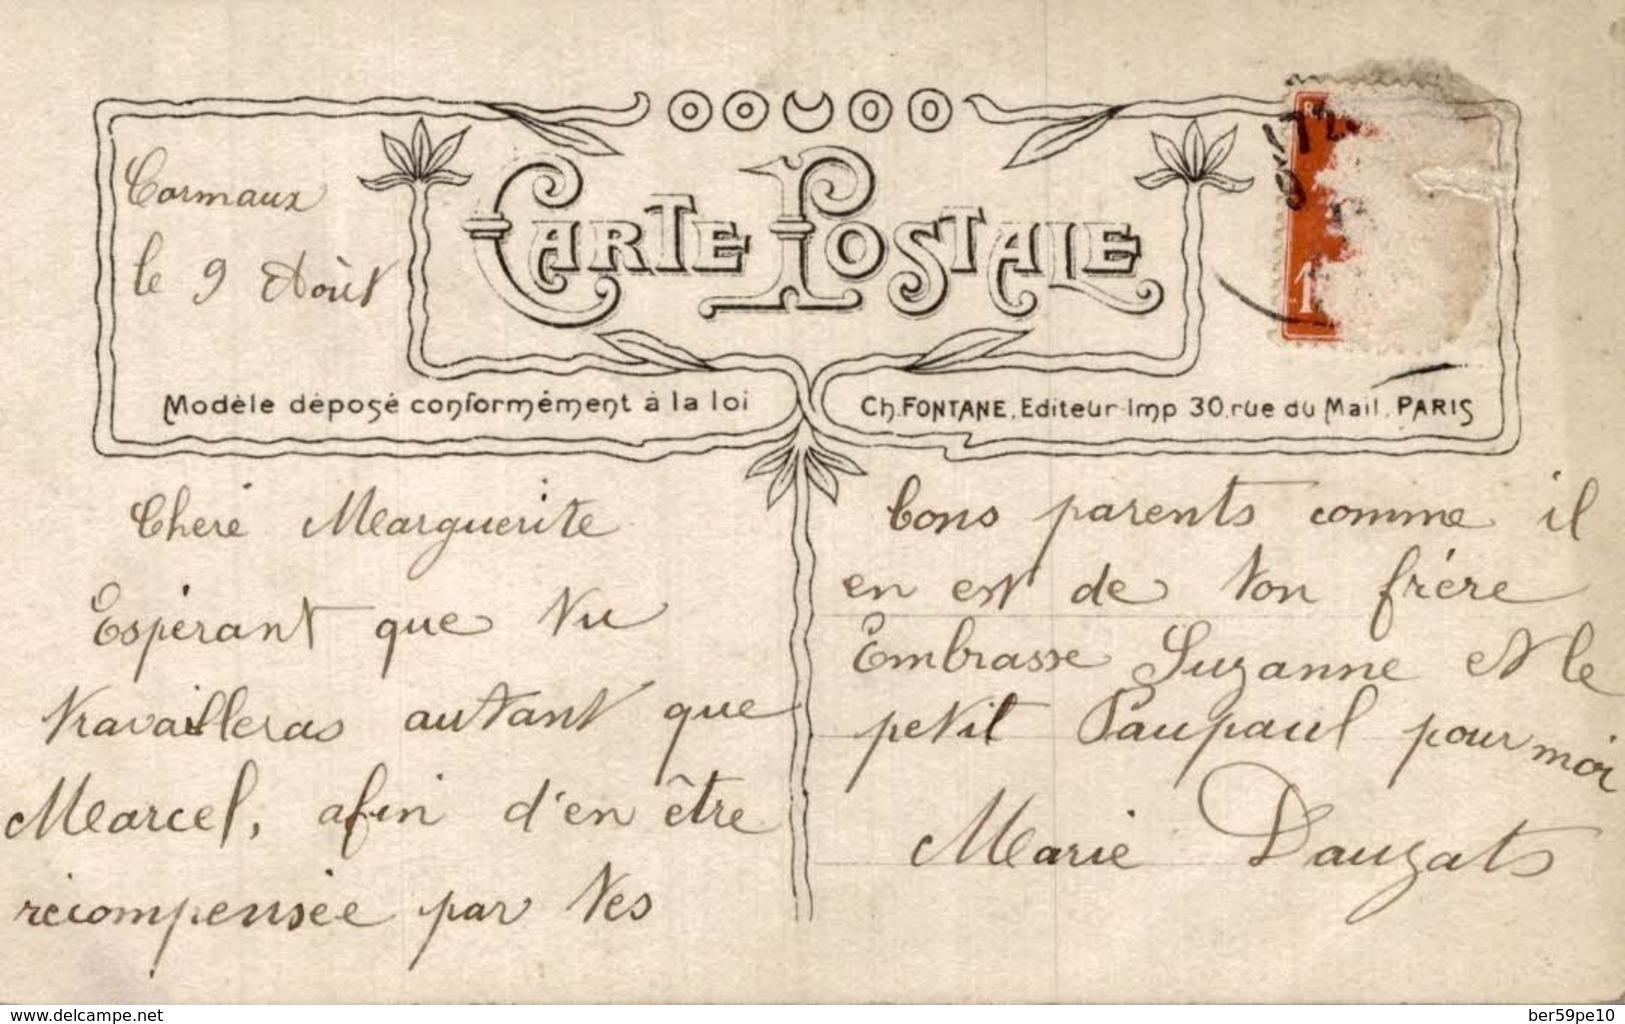 CARTE POSTALE
Carmaux
le 9 Août
Modèle déposé conformément à la loi
Ch. FONTANE. Editeur-Imp 30, rue du Mail. PARIS
Cheré Marguerite
Espérant que tu
travailleras autant que
Marcel, afin d'en être
récompensée par tes
bons parents comme il
en est de ton frère
Embrasse Suzanne et le
petit Paupaul pour moi
Marie Dauzats
www.delcampe.net
ber59pe10